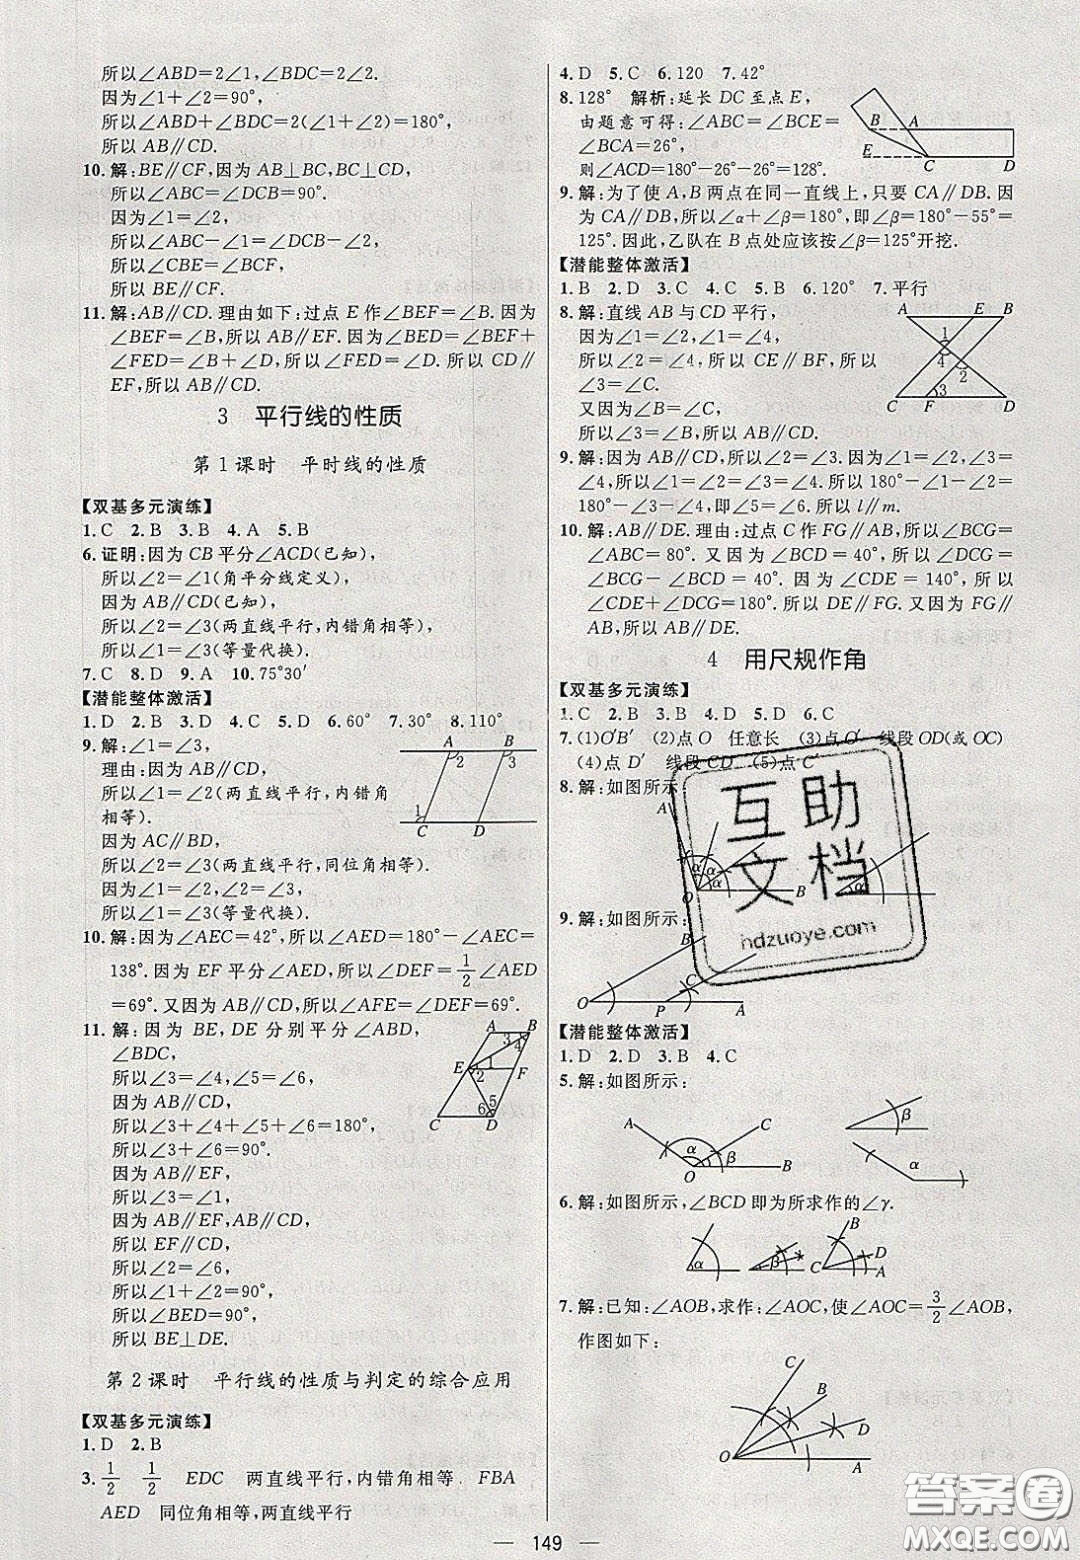 所以∠ABD=2∠1,∠BDC=2∠2.
因为∠1+∠2=90°,
所以∠ABD+∠BDC=2(∠1+∠2)=180°,
所以AB∥CD.
10.解:BE∥CF,因为AB⊥BC,BC⊥CD,
所以∠ABC=∠DCB=90°.
因为∠1=∠2,
所以∠ABC-∠1=∠DCB-∠2,
所以∠CBE=∠BCF,
所以BE∥CF.
11.解:AB∥CD.理由如下:过点E作∠BEF=∠B.因为
∠BEF=∠B,所以AB∥EF.因为∠BED=∠BEF+
∠FED=∠B+∠D,所以∠FED=∠D.所以CD∥
EF,所以AB∥CD.
3 平行线的性质
第1课时 平时线的性质
【双基多元演练】
1.C 2.B 3.B 4.A 5.B
6.证明:因为CB平分∠ACD(已知),
所以∠2=∠1(角平分线定义),
因为AB∥CD(已知),
所以∠2=∠3(两直线平行,内错角相等),
所以∠1=∠3(等量代换).
7.C 8.D 9.A 10.75°30′
【潜能整体激活】
1.D 2.B 3.D 4.C 5.D 6.60° 7.30° 8.110°
9.解:∠1=∠3,
理由:因为AB∥CD,
所以∠1=∠2(两直线平行,内错角
相等).
因为AC∥BD,
所以∠2=∠3(两直线平行,同位角相等).
因为∠1=∠2,∠2=∠3,
所以∠1=∠3(等量代换).
A B
2 3
1
C D
10.解:因为∠AEC=42°,所以∠AED=180°-∠AEC=
138°.因为EF平分∠AED,所以∠DEF=1/2∠AED
=69°.又因为AB∥CD,所以∠AFE=∠DEF=69°.
11.解:因为BE,DE分别平分∠ABD,
∠BDC,
所以∠3=∠4,∠5=∠6.
因为AB∥CD,
所以∠3+∠4+∠5+∠6=180°,
所以∠3+∠6=90°.
因为AB∥EF,
所以∠3=∠1,
因为AB∥EF,AB∥CD,
所以EF∥CD,
所以∠2=∠6,
所以∠1+∠2=90°,
所以∠BED=90°,
所以BE⊥DE.
A B
3 4
E 1
2 F
5
6
C D
第2课时 平行线的性质与判定的综合应用
【双基多元演练】
1.D 2.B
3.1/2 1/2 EDC 两直线平行,内错角相等 FBA
AED 同位角相等,两直线平行
4.D 5.C 6.120 7.42°
8.128° 解析:延长DC至点E,
由题意可得:∠ABC=∠BCE=
∠BCA=26°,
则∠ACD=180°-26°-26°=128°.
B A
E C D
9.解:为了使A,B两点在同一直线上,只要CA∥DB.因
为CA∥DB,所以∠α+∠β=180°,即∠β=180°-55°=
125°.因此,乙队在B点处应该按∠β=125°开挖.
【潜能整体激活】
1.B 2.D 3.C 4.C 5.C 6.120° 7.平行
8.解:直线AB与CD平行,
因为∠1=∠2,∠1=∠4,
所以∠2=∠4,所以CE∥BF,所以
∠3=∠C.
又因为∠B=∠C,
所以∠3=∠B,所以AB∥CD.
A E B
1
4
2
3
C F D
9.解:因为AB∥CD,所以∠2=∠3.因为∠1=∠2,∠3=
∠4,所以∠1=∠2=∠3=∠4.所以180°-∠1-∠2=
180°-∠3-∠4,即∠5=∠6.所以l∥m.
10.解:AB∥DE.理由:过点C作FG∥AB,所以∠BCG=
∠ABC=80°.又因为∠BCD=40°,所以∠DCG=
∠BCG-∠BCD=40°.因为∠CDE=140°,所以
∠CDE+∠DCG=180°.所以DE∥FG.又因为FG∥
AB,所以AB∥DE.
4 用尺规作角
【双基多元演练】
1.C 2.B 3.C 4.D 5.D 6.C
7.(1)O′B′ (2)点O 任意长 (3)点O′ 线段OD(或OC)
(4)点D′ 线段CD (5)点C′
8.解:如图所示:
A
α α
O B
9.解:如图所示:
B
C
O P A
【潜能整体激活】
1.D 2.D 3.B 4.C
5.解:如图所示:
A C
α β
O B
β
α
6.解:如图所示,∠BCD即为所求作的∠γ.
α
β
B
D
C A
7.解:已知:∠AOB,求作:∠AOC,使∠AOC=3/2∠AOB,
作图如下:
C
B
D
O A
互助
文档
hdzuoye.com
答案圈
MXQE.COM
149